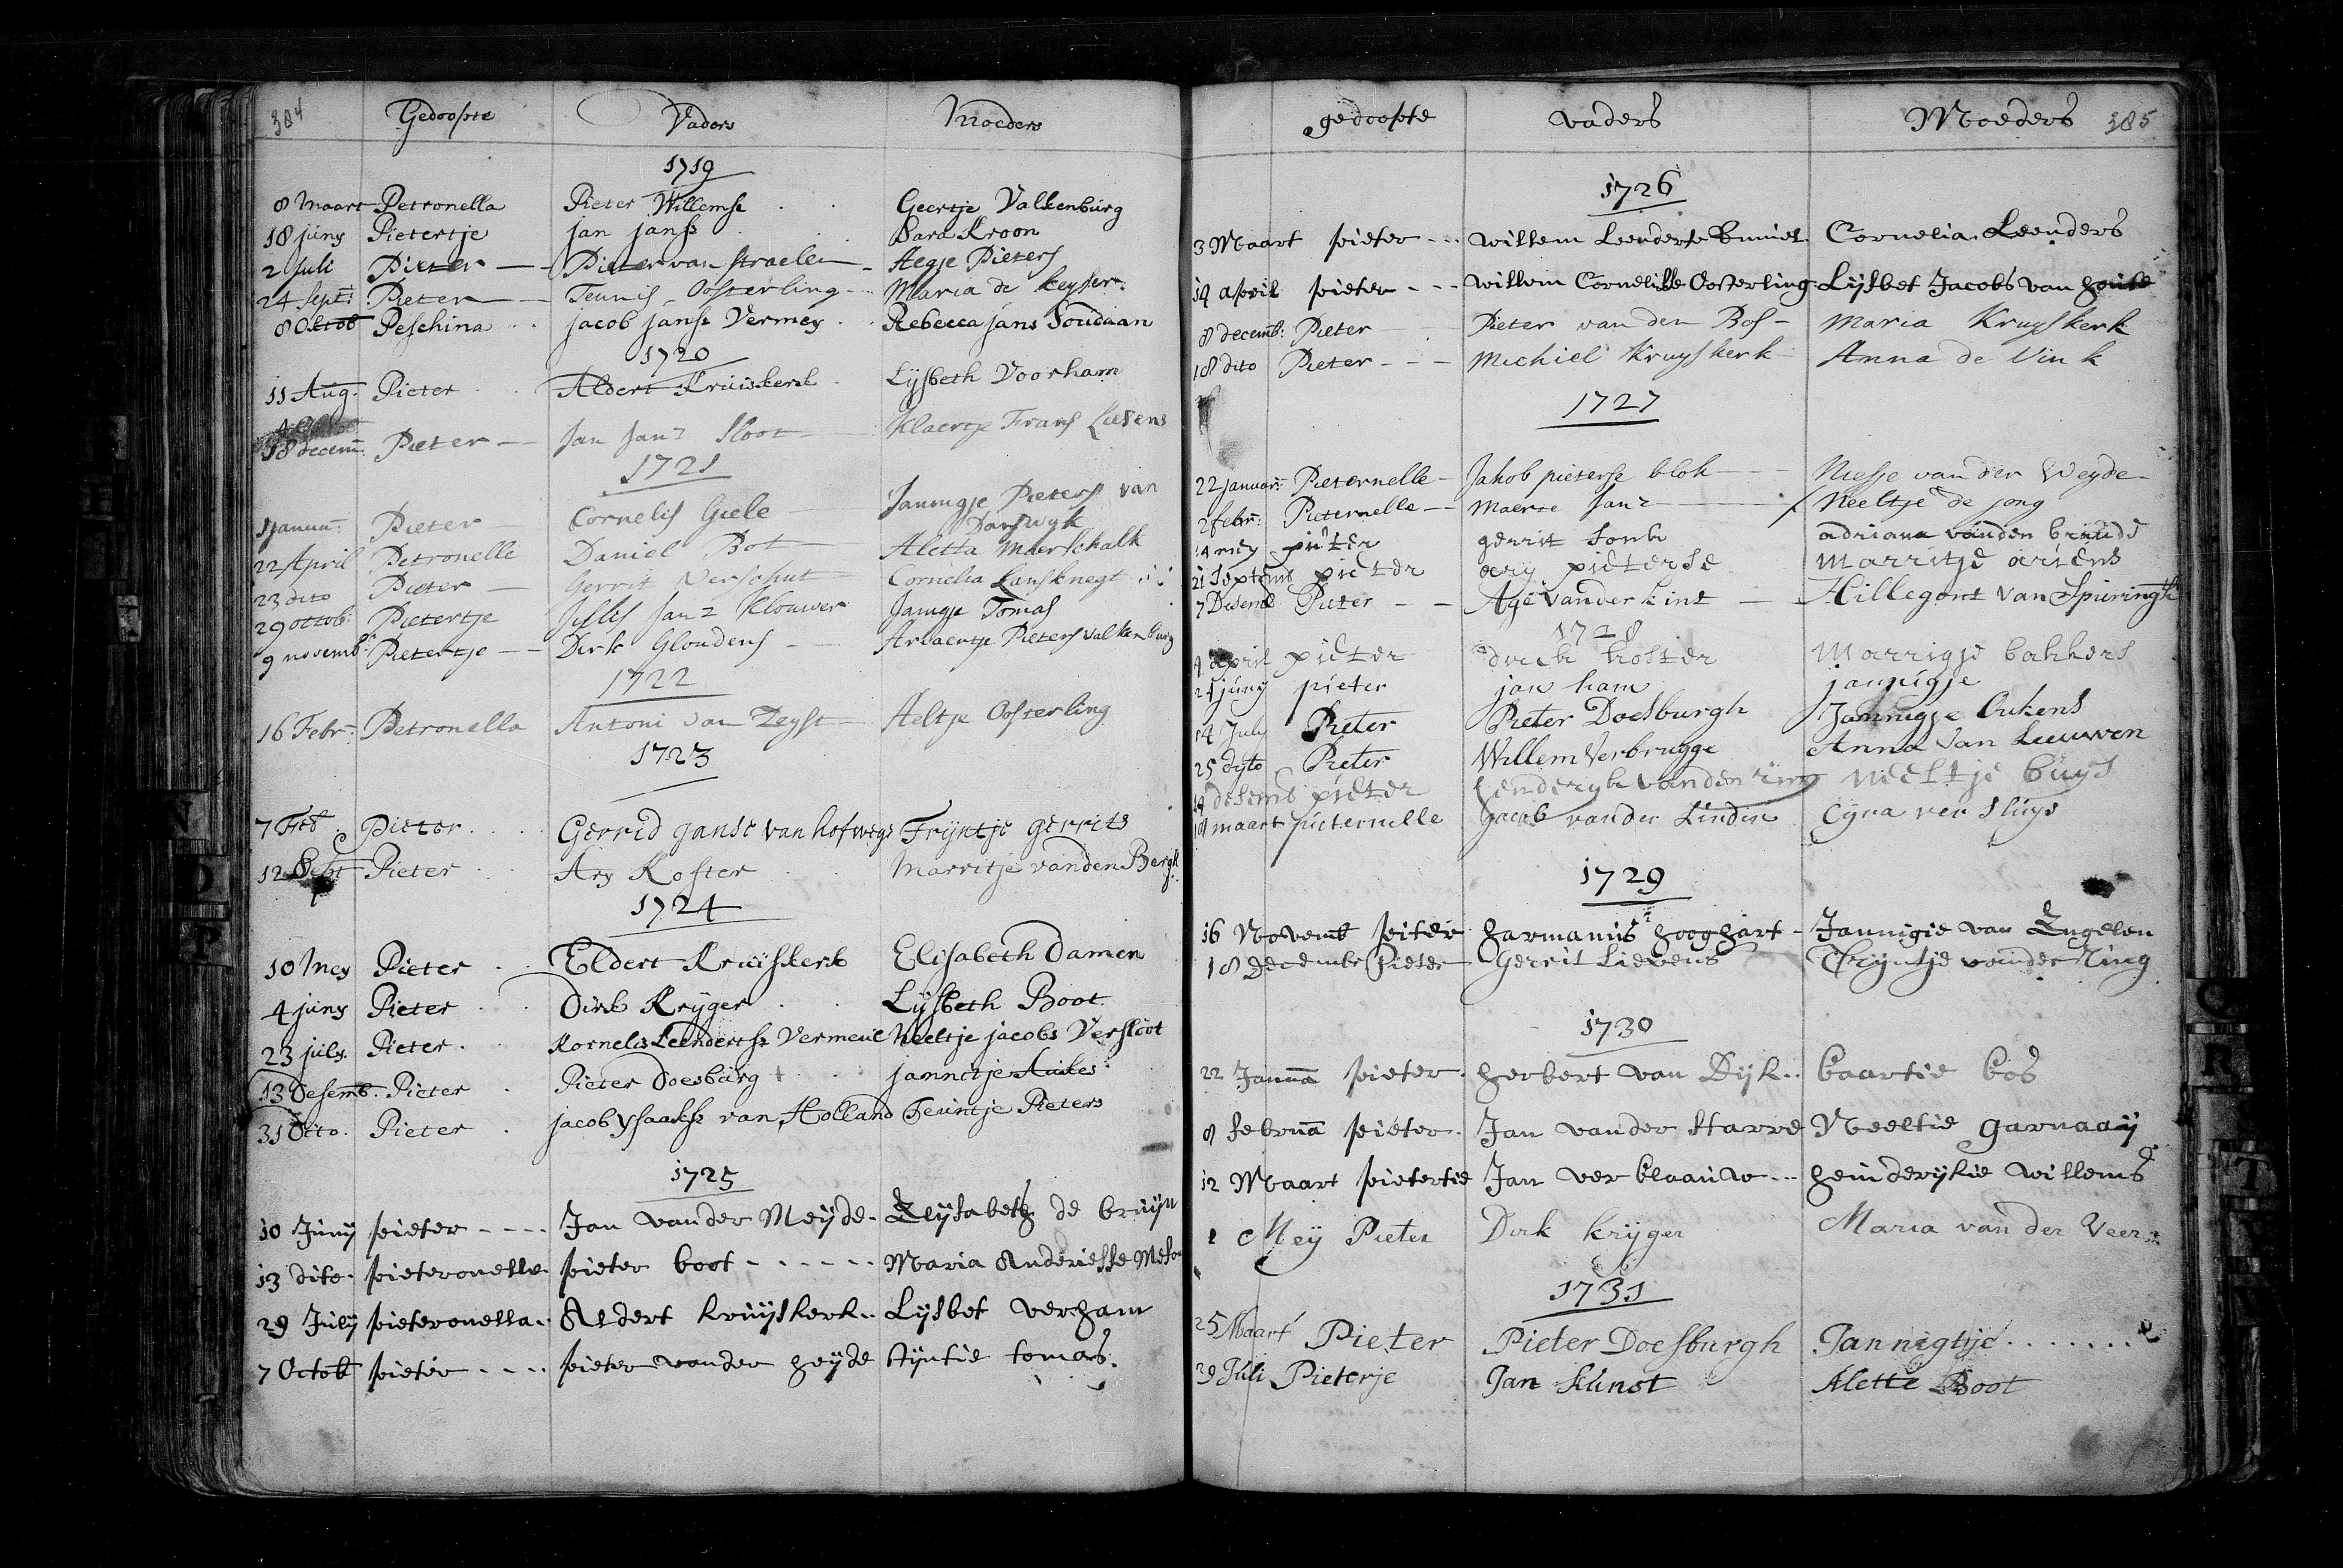 304 Gedoopte Vaders Moeders
1719
8 Maart Petronella Pieter Willemsz Geertje Valkenburg
18 juny Pietertje jan jansz Sara Kroon
2 Juli Pieter Pieter van Straelen Aegje Pieters
24 Sept: Pieter Teunis Oosterling Maria de Keyser
8 Oktob Peschina jacob jansz Vermey Rebecca jans Soudaan
1720
11 Aug. Pieter Aldert Kruiskerk Lysbeth Voorham
18 decem: Pieter Jan Janz Sloot Klaertje Frans Lievens
1721
Januu: Pieter Cornelis Giele Jannigje Pieters van
22 April Petronelle Daniel Bot Aletta Maerschalk
23 dito Pieter Gerrit Verschut Cornelia Lansknegt
29 octob: Pietertje Jillis Janz Klouwer Jangje Tomas
9 novemb: Pietertje Dirk Gloudens Ariaentje Pieters Valkenburg
1722
16 Febr: Petronella Antoni van Zeyst Aeltje Oosterling
1723
7 Feb Pieter Gerrid ganse van hofwege Tryntje gerrits
12 Sept Pieter Ary Koster Marritje vanden Bergh
1724
10 Mey Pieter Eldert Kruiskerk Elisabeth Damen
4 juny Pieter Dirk Kryger Lysbeth Boot
23 july Pieter Kornelis Leendertsz Vermeul Neeltje jacobs Versloot
13 Desemb. Pieter Pieter Doesburg jannetje
31 Dito. Pieter jacob ysaaksz van Holland Teuntje Pieters
1725
10 Juny pieter Jan vander Meyde Elysabeth de bruyn
13 dito pieteronella pieter boot Maria Anderiesse
29 July pieteronella Aldert kruyskerk Lysbet verham
7 Octob pieter pieter vander heyde Styntie tomas
gedoopte vaders Moeders 305
1726
3 Maart pieter willem Leenderse Cornelia Leenders
19 april pieter willem Cornelisse Oosterling Lysbet Jacobs van
8 decemb: Pieter Pieter van den Bos Maria Kruyskerk
18 dito Pieter Michiel Kruyskerk Anna de Vink
1727
22 januari: Pieternelle Jakob pieterse blok Niesje van der Weyde
2 febr: Pieternelle Maerte Janz Neeltje de jong
14 mey pieter gerrit adriana vanden
21 Septemb pieter ary pieterse Marritje ariens
7 Desemb Pieter Age vander kint Hillegont van Spieringh
1728
4 april pieter dirck koster Marrigje bakkers
24 juny pieter jan ham jannigje
14 July Pieter Pieter Doesburgh Jannigje Oukens
25 dyto Pieter Willem Verbrugge Anna van Leeuwen
19 desemb pieter hendryk vanden ring Neeltje buys
19 maart pieternelle Jacob vander Linden Cyna ver sluys
1729
16 Novemb pieter harmanus hooghart Jannigie van Engelen
18 Decembr Pieter Gerrit Lievens Tryntje vander Ring
1730
22 Janua pieter herbert van Dyk baartie bos
8 februa pieter Jan vander Starre Neeltie garnaay
12 Maart pietertie Jan ver blaauw heinderykie willems
1 Mey Pieter Dirk Kryger Maria van der Veer
1731
25 Maart Pieter Pieter Doesburgh Jannigtje
29 Juli Pieterje Jan Kunst Alette Boot